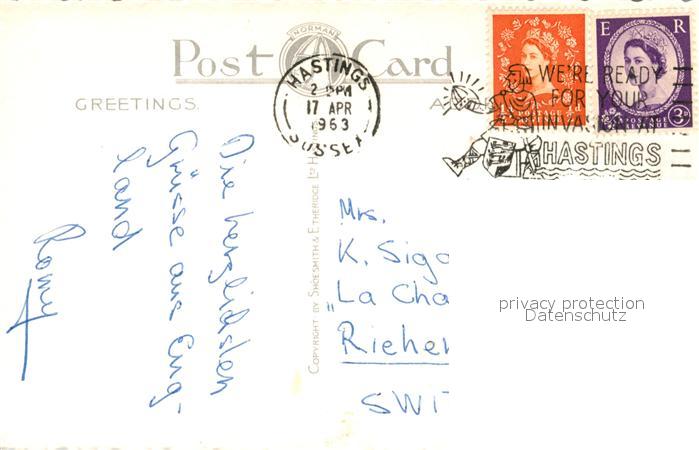 Post Card
NORMAN
GREETINGS.
HASTINGS
2 PM
17 APR
1963
SUSSEX
E R
WE'RE READY
FOR YOUR
INVASION AT
HASTINGS
POSTAGE
REVENUE
3D
COPYRIGHT BY SHOESMITH & ETHERIDGE LTD HASTINGS
Die herzlichsten
Grüsse aus Eng-
land
Romy
Mrs.
K. Sigg
"La Cha
Riehen
SWI
privacy protection
Datenschutz